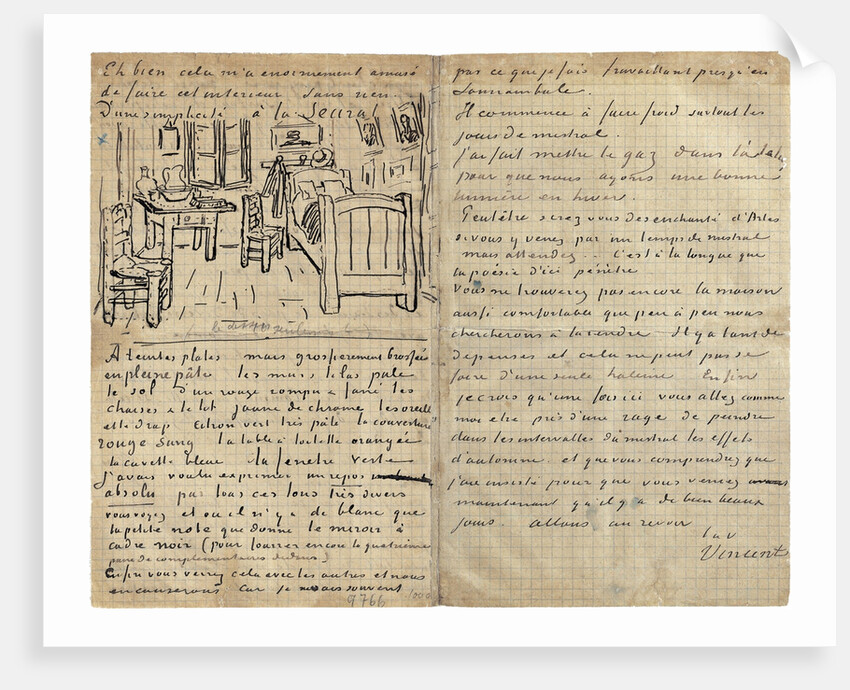 Eh bien cela m'a enormement amusé
de faire cet interieur sans rien.
D'une simplicité à la Seurat
(le dessin seulement)
A teintes plates mais grossierement brossées
en pleine pâte les murs lilas pale
le sol d'un rouge rompu & fané les
chaises & le lit jaune de chrome les oreillers
et le drap citron vert très pâle la couverture
rouge sang la table à toilette orangée
la cuvette bleue la fenetre verte
J'avais voulu exprimer un repos
absolu par tous ces tons très divers
vous voyez et ou il n'y a de blanc que
la petite note que donne le miroir à
cadre noir (pour fourrer encore la quatrième
paire de complementaires dedans)
Enfin vous verrez cela avec les autres et nous
en causerons car je ne sais souvent
9766
pas ce que je fais travaillant presqu'en
somnambule.
Il commence à faire froid surtout les
jours de mistral.
J'ai fait mettre le gaz dans l'atelier
pour que nous ayons une bonne
lumière en hiver.
Peutêtre serez vous desenchanté d'Arles
si vous y venez par un temps de mistral
mais attendez.. C'est à la longue que
la poésie d'ici pénètre
Vous ne trouverez pas encore la maison
aussi confortable que peu à peu nous
chercherons à la rendre. Il y a tant de
depenses et cela ne peut pas se
faire d'une seule haleine Enfin
je crois qu'une fois ici vous allez comme
moi etre pris d'une rage de peindre
dans les intervalles du mistral les effets
d'automne. et que vous comprendrez que
j'aie insisté pour que vous veniez
maintenant qu'il y a de bien beaux
jours. allons au revoir
t. à v
Vincent